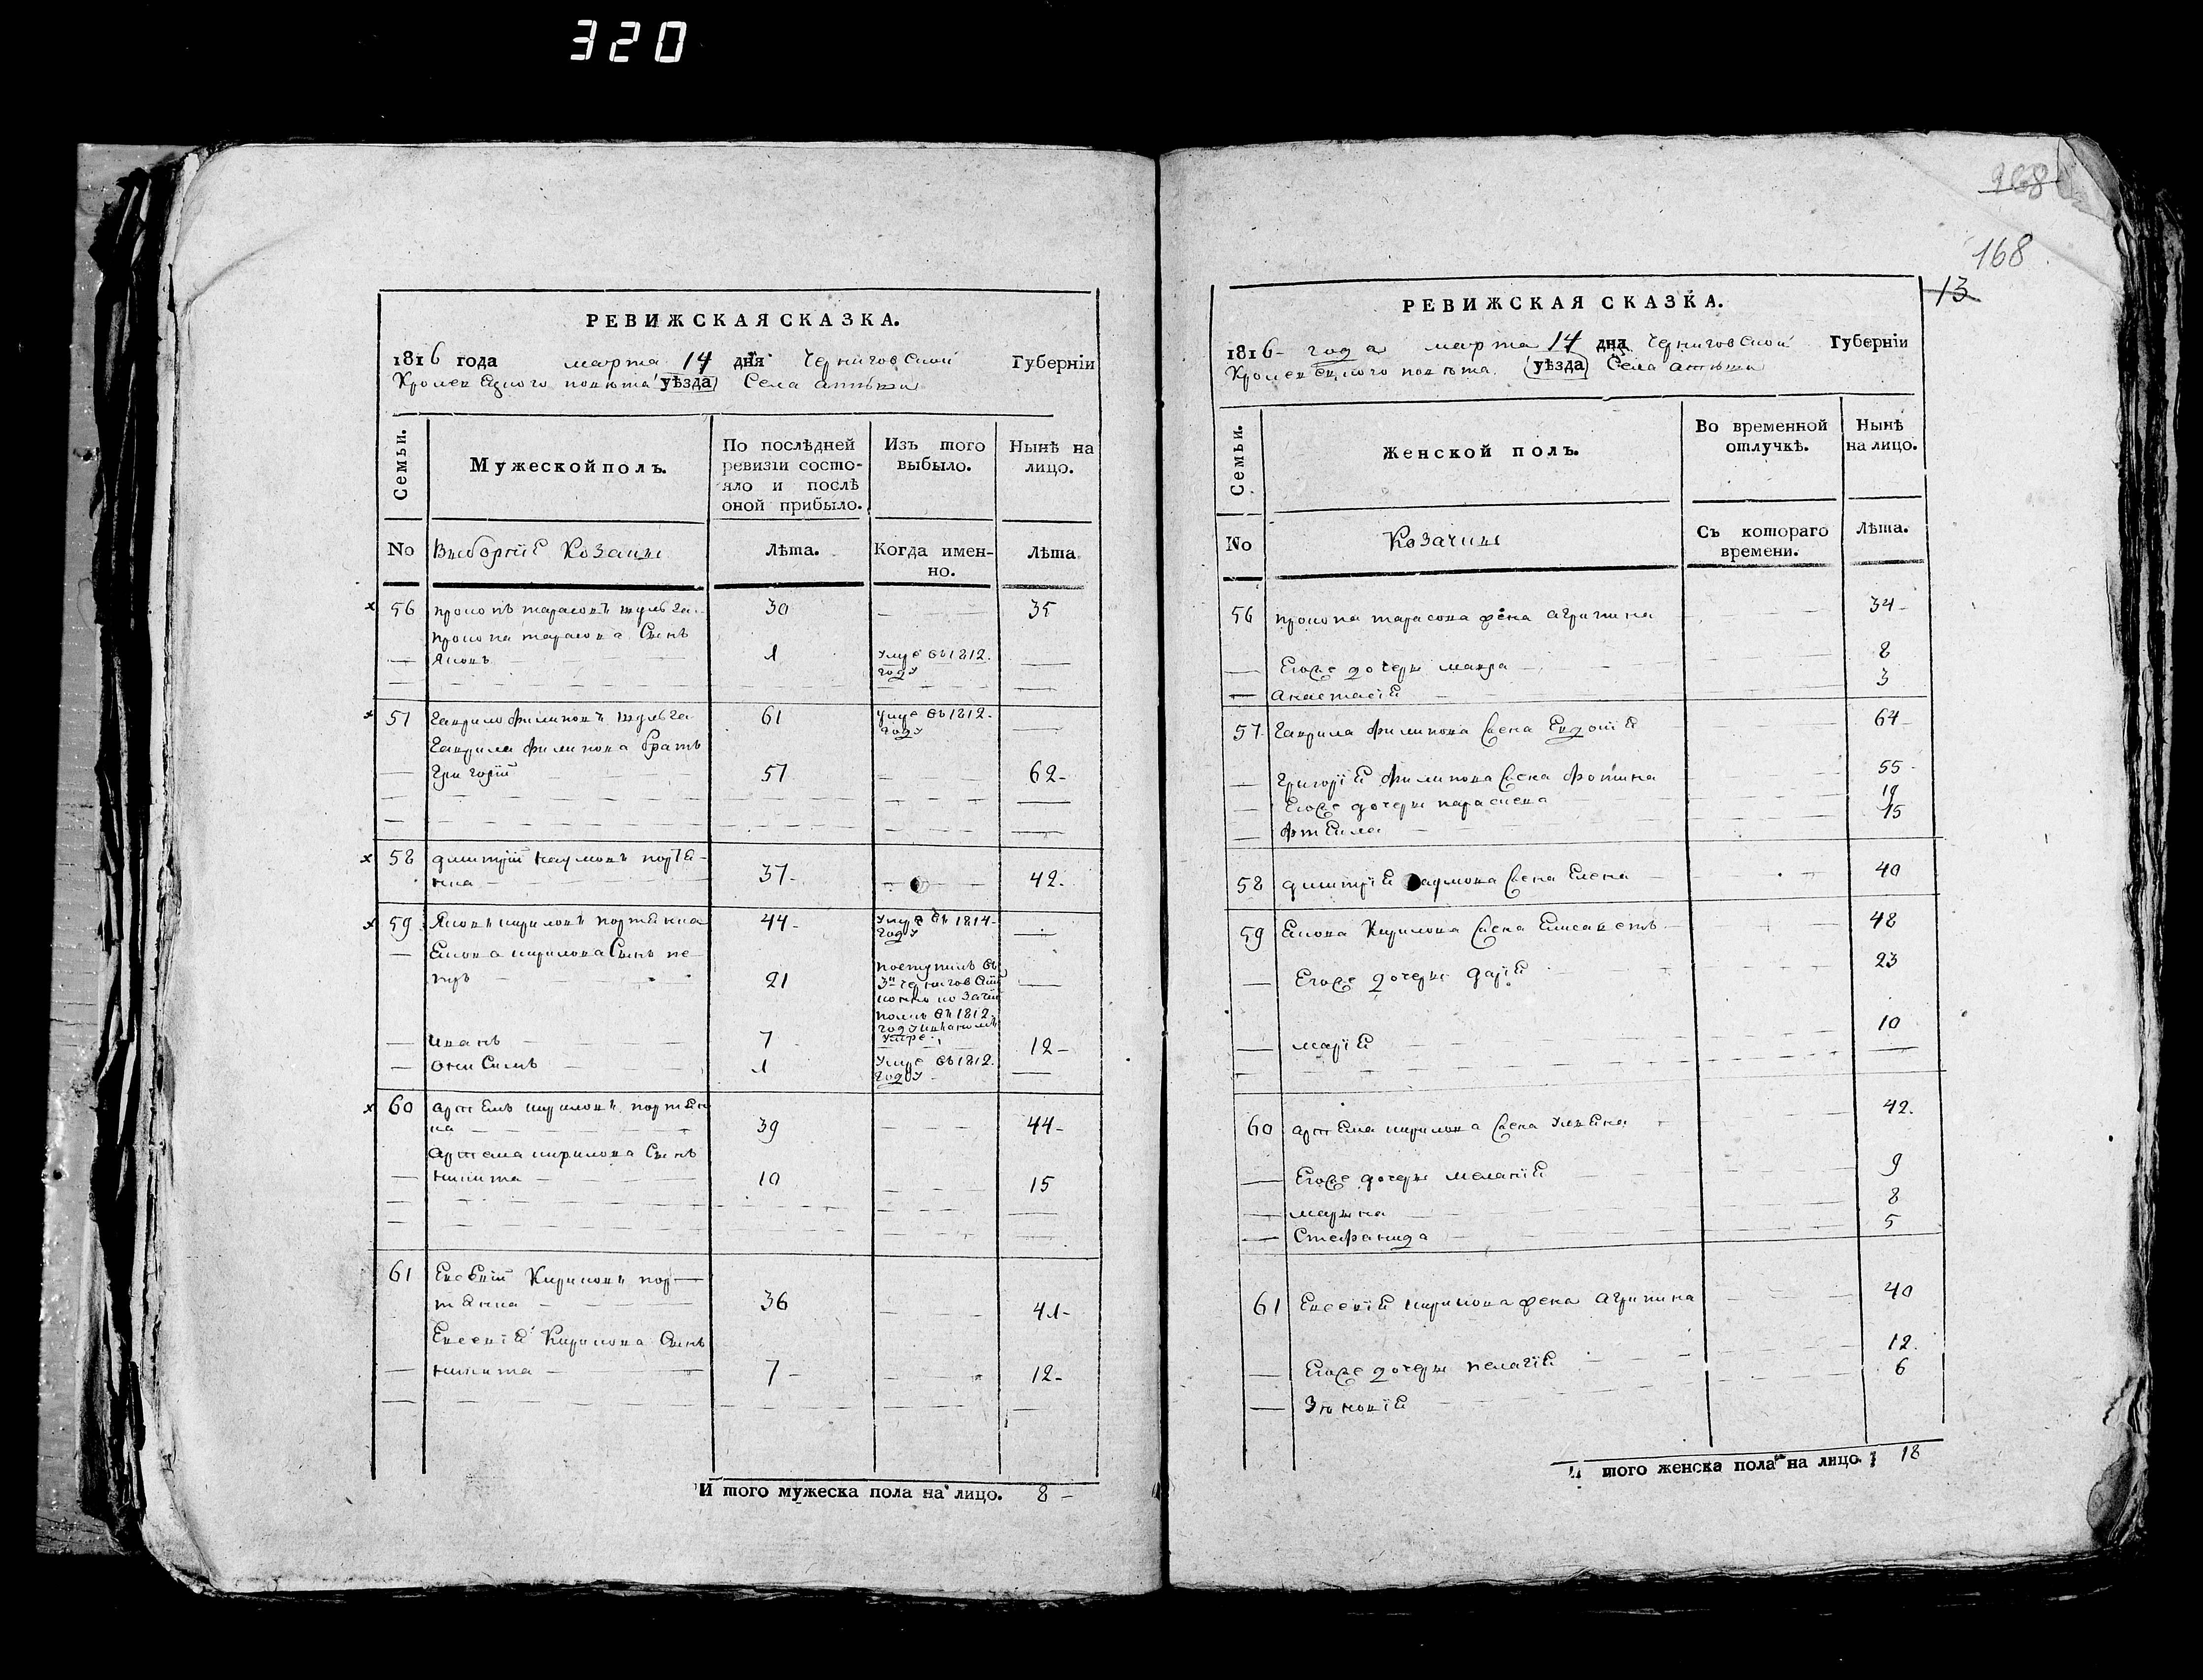 320
РЕВИЖСКАЯ СКАЗКА.
1816 года марта 14 дня Черниговской Губернїи
Кролевецкого повѣта уѣзда Села
Семьи.
Мужеской полъ.
По послѣдней ревизїи состо-
яло и послѣ
оной прибыло.
Изъ того
выбыло.
Нынѣ на
лицо.
No
Выборнїе Козаки
Лѣта.
Когда имен-
но.
Лѣта
56 Прокопъ Тарасовъ 30 35
Прокопа Тарасова Сынъ
Яковъ 1 умре въ 1812.
году
57 Гаврило Филиповъ 61 умре въ 1812.
году
Гаврила Филипова братъ
Григорїй 57 62
58 Дмитрїй Наумовъ 37 42
59 Яковъ Кириловъ 44 умре въ 1814
году
Екова Кирилова Сынъ Пе
тръ 21 поступилъ въ
3й Черниговскїй
полкъ въ 1812
году
умре
Иванъ 7 12
Онисимъ 1 умре въ 1812.
году
60 Артемъ Кириловъ 39 44
Артема Кирилова Сынъ
Никита 10 15
61 Евсевїй Кириловъ 36 41
Евсевїя Кирилова Сынъ
Никита 7 12
И того мужеска пола на лицо. 8
168
168
13
РЕВИЖСКАЯ СКАЗКА.
1816 года марта 14 дня Черниговской Губернїи
Кролевецкого повѣта уѣзда Села
Семьи.
Женской полъ.
Во временной
отлучкѣ.
Нынѣ
на лицо.
No
Козачки
Съ котораго
времени.
Лѣта.
56 Прокопа Тарасова жена Агрипина 34
Егоже дочери Мавра 8
Анастасїя 3
57 Гаврила Филипова жена Евдокїя 64
Григорїя Филипова жена Фотина 55
Егоже дочери Параскева 19
15
58 Дмитрїя Наумова жена Елена 40
59 Екова Кирилова жена Елисаветъ 48
Егоже дочери Дарїя 23
Марїя 10
60 Артема Кирилова жена Улїяна 42.
Егоже дочери Меланїя 9
Марина 8
Стефанида 5
61 Евсевїя Кирилова жена Агрипина 40
Егоже дочери Пелагїя 12
Зѣновїя 6
И того женска пола на лицо. 18